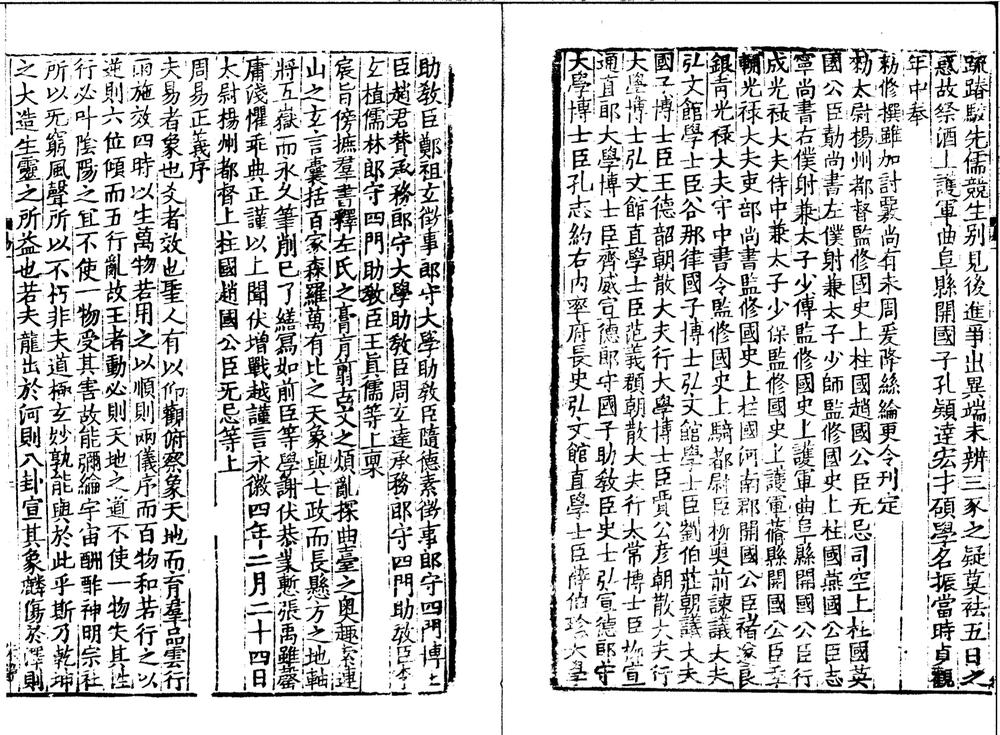 疏踳駮先儒競生別見後進爭出異端未辨三豕之疑莫袪五日之
惑故祭酒上護軍曲阜縣開國子孔頴達宏才碩學名振當時貞觀
年中奉
勑修撰雖加討覈尚有未周爰降絲綸更令刊定
勑太尉揚州都督監修國史上柱國趙國公臣无忌司空上柱國英
國公臣勣尚書左僕射兼太子少師監修國史上柱國燕國公臣志
寧尚書右僕射兼太子少傅監修國史上護軍曲阜縣開國公臣行
成光禄大夫侍中兼太子少保監修國史上護軍蓨縣開國公臣季
輔光禄大夫吏部尚書監修國史上柱國河南郡開國公臣褚遂良
銀青光禄大夫守中書令監修國史上騎都尉臣栁奭前諫議大夫
弘文館學士臣谷那律國子博士弘文館學士臣劉伯莊朝議大夫
國子博士臣王德韶朝散大夫行大學博士臣賈公彥朝散大夫行
大學博士弘文館直學士臣范義頵朝散大夫行太常博士臣栁宣
通直郎大學博士臣齊威宣德郎守國子助敎臣史士弘宣德郎守
大學博士臣孔志約右内率府長史弘文館直學士臣薛伯珍大學
助敎臣鄭祖玄徵事郎守大學助敎臣隨德素徵事郎守四門博士
臣趙君賛承務郎守大學助敎臣周玄達承務郎守四門助敎臣李
玄植儒林郎守四門助敎臣王眞儒等上稟
宸旨傍摭羣書釋左氏之膏肓翦古文之煩亂探曲臺之奥趣索連
山之玄言囊括百家森羅萬有比之天象與七政而長懸方之地軸
將五嶽而永久筆削已了繕寫如前臣等學謝伏恭業慙張禹雖罄
庸淺懼乖典正謹以上聞伏增戰越謹言永徽四年二月二十四日
太尉揚州都督上柱國趙國公臣无忌等上
周易正義序
夫易者象也爻者效也聖人有以仰觀俯察象天地而育羣品雲行
雨施效四時以生萬物若用之以順則兩儀序而百物和若行之以
逆則六位傾而五行亂故王者動必則天地之道不使一物失其性
行必叶陰陽之宜不使一物受其害故能彌綸宇宙酬酢神明宗社
所以无窮風聲所以不朽非夫道極玄妙孰能與於此乎斯乃乾坤
之大造生靈之所益也若夫龍出於河則八卦宣其象麟傷於澤則